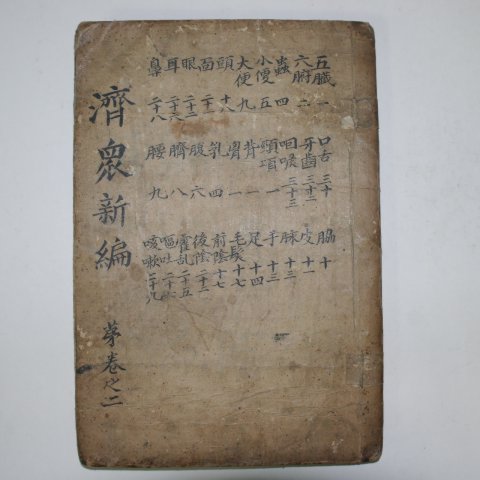 五臟 一
六腑 二
蟲 四
小便 五
大便 九
頭 十八
面 二十一
眼 二十二
耳 二十六
鼻 二十八
口舌 三十
牙齒 三十二
咽喉 三十三
頸項 一
背 一
胷 一
乳 四
腹 六
臍 八
腰 九
脇 十
皮 十一
脉 十二
手 十三
足 十四
毛髮 十七
前陰 十七
後陰 二十二
霍乱 二十五
嘔吐 二十六
咳嗽 二十九
濟衆新編
卷之二